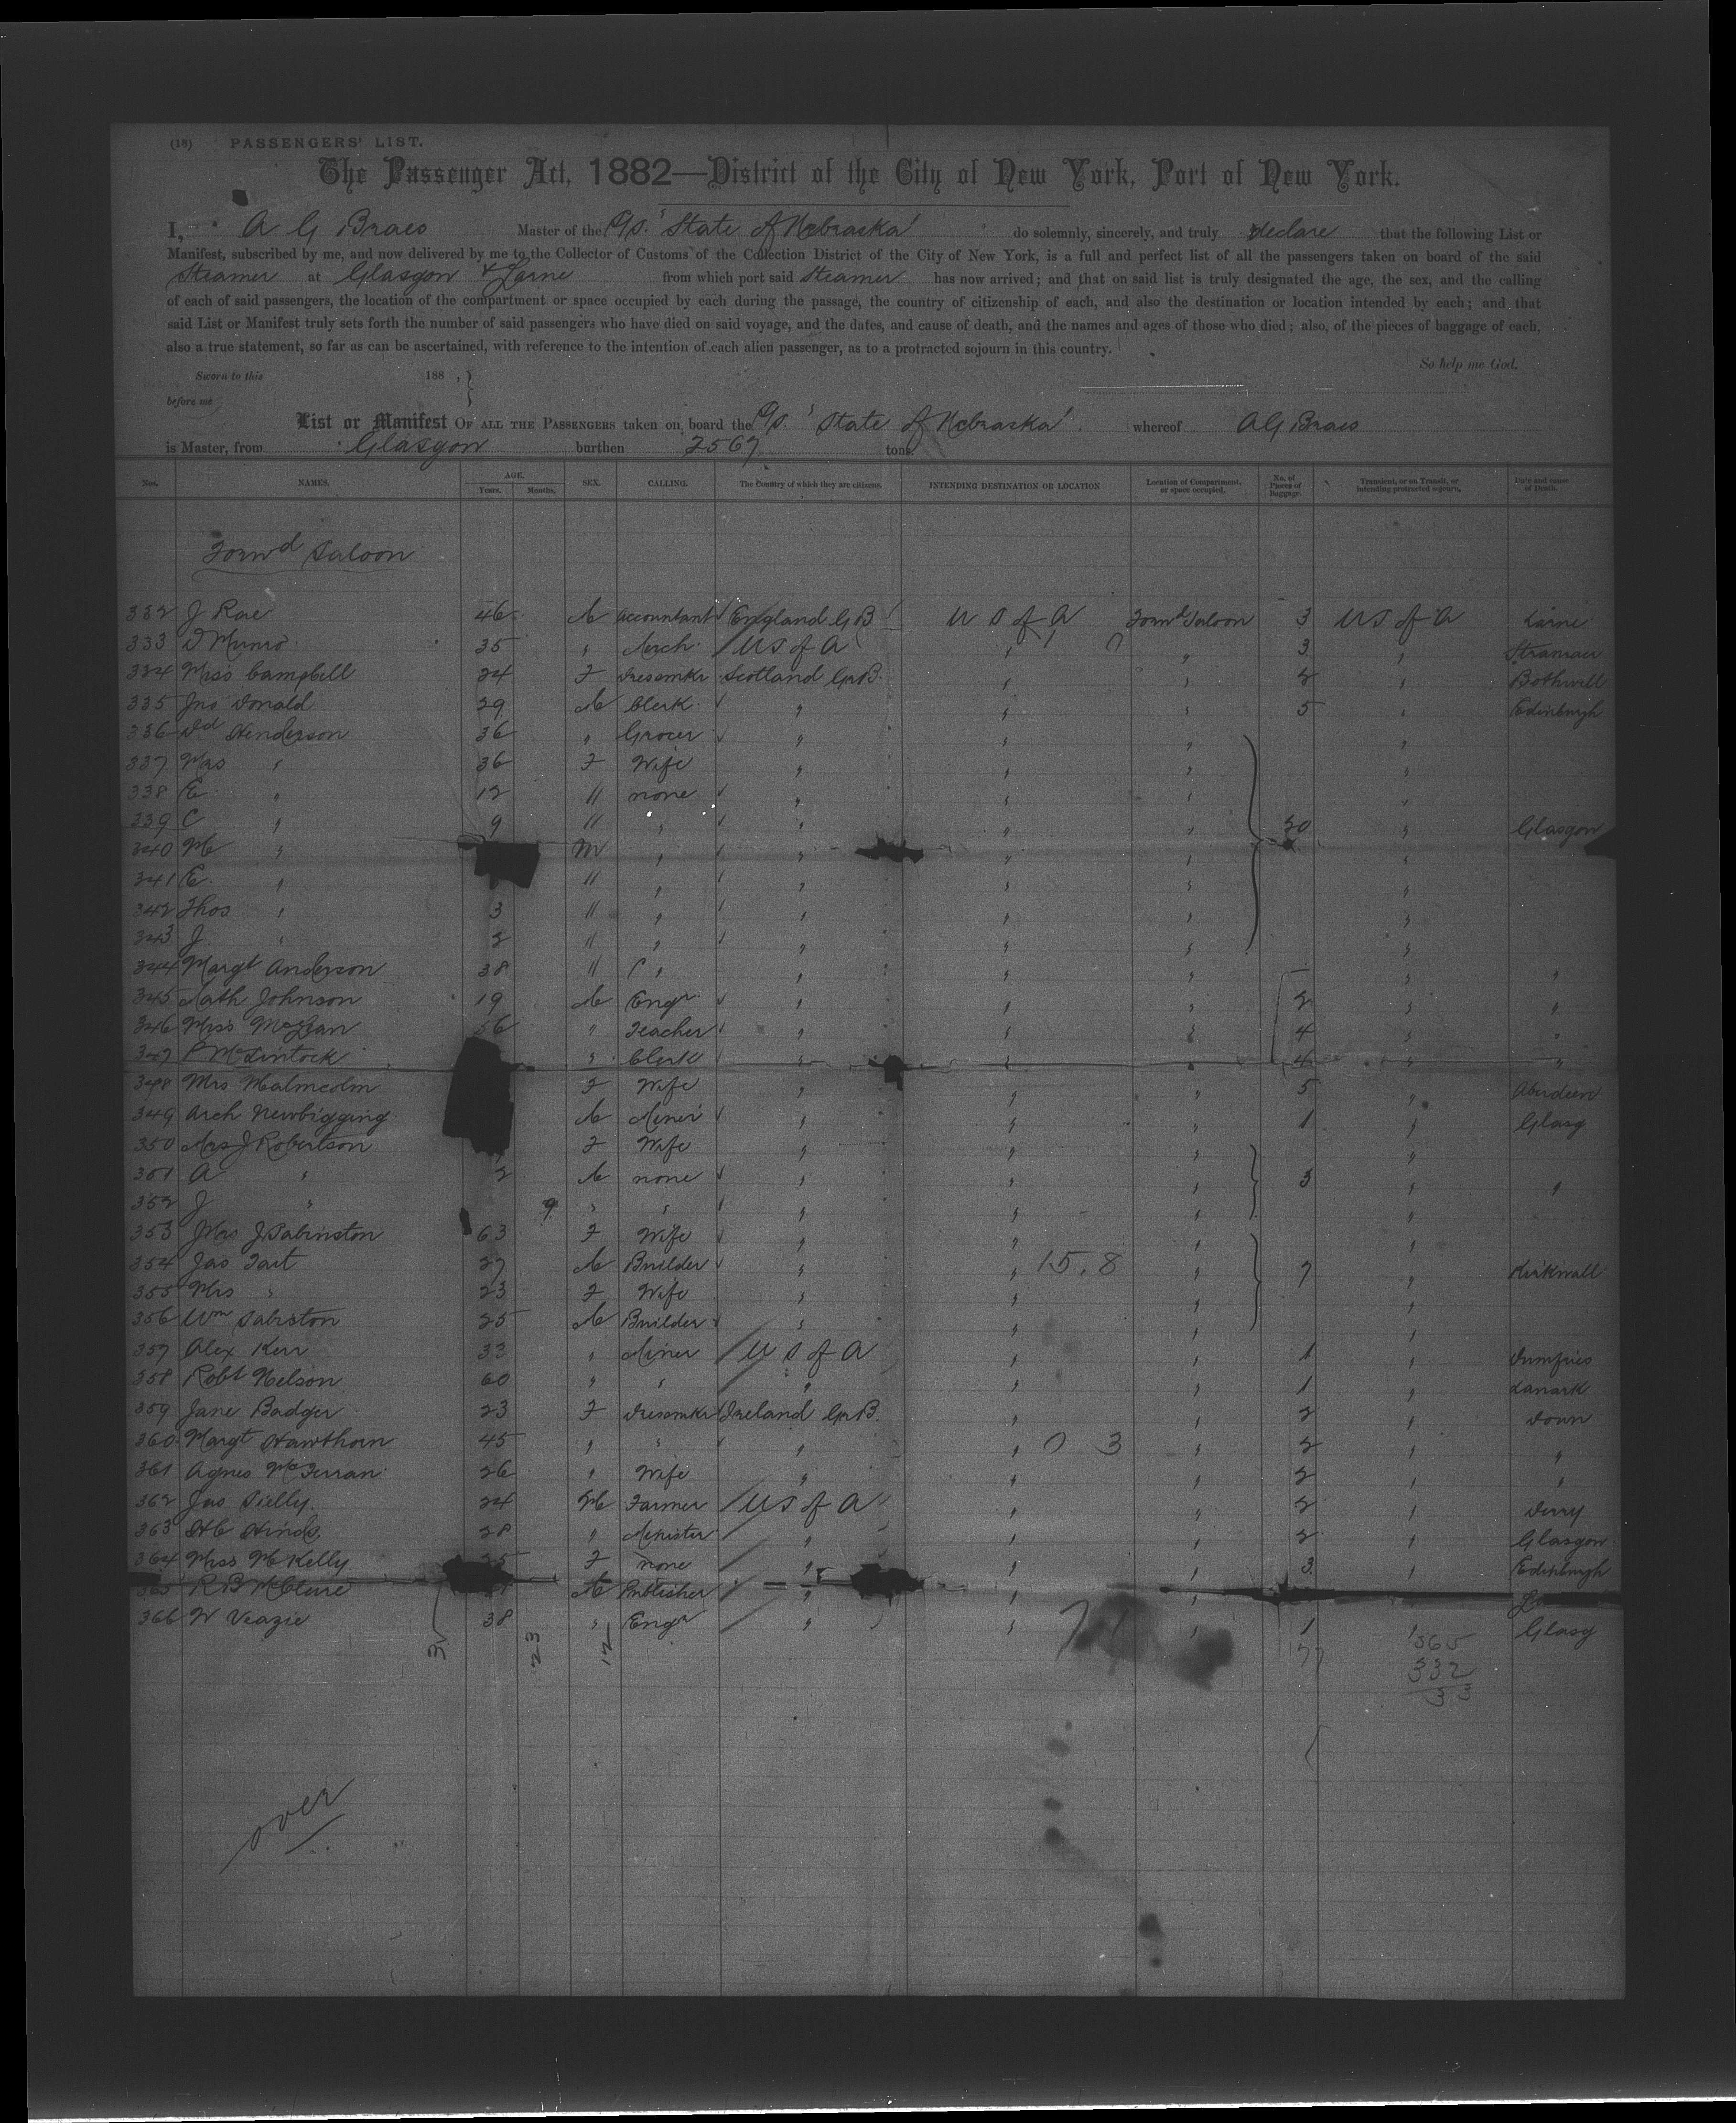 (18) PASSENGERS' LIST.
The Passenger Act, 1882—District of the City of New York, Port of New York.
I, A G Braes Master of the S/s. 'State of Nebraska' do solemnly, sincerely, and truly declare that the following List or
Manifest, subscribed by me, and now delivered by me to the Collector of Customs of the Collection District of the City of New York, is a full and perfect list of all the passengers taken on board of the said
Steamer at Glasgow & Larne from which port said Steamer has now arrived; and that on said list is truly designated the age, the sex, and the calling
of each of said passengers, the location of the compartment or space occupied by each during the passage, the country of citizenship of each, and also the destination or location intended by each; and that
said List or Manifest truly sets forth the number of said passengers who have died on said voyage, and the dates, and cause of death, and the names and ages of those who died; also, of the pieces of baggage of each,
also a true statement, so far as can be ascertained, with reference to the intention of each alien passenger, as to a protracted sojourn in this country.
So help me God.
Sworn to this 188 ,
before me
List or Manifest OF ALL THE PASSENGERS taken on board the S/s. 'State of Nebraska' whereof A G Braes
is Master, from Glasgow burthen 2567 tons.
Nos. NAMES. AGE. Years. Months. SEX. CALLING. The Country of which they are citizens. INTENDING DESTINATION OR LOCATION Location of Compartment, or space occupied. No. of Pieces of Baggage. Transient, or on Transit, or intending protracted sojourn. Date and cause of Death.
Forwd Saloon
332 J Rae 46 M Accountant England GB U S of A Forwd Saloon 3 U S of A Larne
333 D Munro 35 " Merch. U S of A " " 3 " Stranraer
334 Miss Campbell 24 F Dressmkr Scotland Gr B. " " 2 " Bothwell
335 Jno Donald 29 M Clerk " " " 5 " Edinburgh
336 Dd Henderson 36 " Grocer " " " "
337 Mrs " 36 F Wife " " " "
338 E " 12 " none " " " "
339 C " 9 " " " " " 20 " Glasgow
340 M " M " " " " "
341 E. " " " " " " "
342 Thos " 3 " " " " " "
343 J " 2 " " " " " "
344 Margt Anderson 38 " " " " " " "
345 Math Johnson 19 M Engr. " " " 2 " "
346 Miss McLean " Teacher " " " 4 " "
347 P McLintock " Clerk " " " 4 " "
348 Mrs Malmcolm F Wife " " " 5 " Aberdeen
349 Arch Newbigging M Miner " " " 1 " Glasg
350 Mrs J Robertson F Wife " " " "
351 A " 2 M none " " " 3 " "
352 J " 9 " " " " " "
353 Mrs J Sabinston 63 F Wife " " " "
354 Jas Tait 27 M Builder " " 15.8 " 7 " Kirkwall
355 Mrs " 23 F Wife " " " "
356 Wm Sabiston 25 M Builder " " " "
357 Alex Kerr 33 " Miner U S of A " " 1 " Dumfries
358 Robt Nelson 60 " " " " " 1 " Lanark
359 Jane Badger 23 F Dressmkr Ireland Gr B. " " 2 " Down
360 Margt Hawthorn 45 " " " " 0 3 " 2 " "
361 Agnes McFerran 26 " Wife " " " 2 " "
362 Jas Sielly 24 M Farmer U S of A " " 2 " Derry
363 H C Hinds 28 " Minister " " " 2 " Glasgow
364 Miss M Kelly 25 F none " " " 3 " Edinburgh
365 R B McClure M Publisher " "
366 W Veazie 38 " Engr " " " 1 " Glasg
23 12 77 365
332
33
over